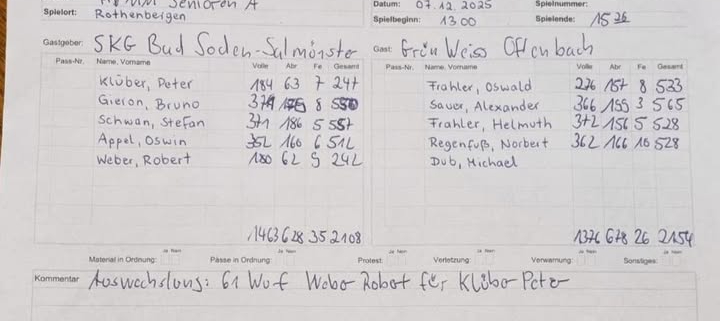 Senioren A
Datum: 07.12.2025 Spielnummer:
Spielort: Rothenbergen Spielbeginn: 13 00 Spielende: 15 36
Gastgeber: SKG Bad Soden-Salmünster Gast: Grün Weiss Offenbach
Pass-Nr. Name, Vorname Volle Abr Fe Gesamt Pass-Nr. Name, Vorname Volle Abr Fe Gesamt
Klüber, Peter 184 63 7 247 Frahler, Oswald 276 157 8 533
Gieron, Bruno 8 550 Sauer, Alexander 366 199 3 565
Schwan, Stefan 371 186 5 557 Frahler, Helmuth 372 156 5 528
Appel, Oswin 352 160 6 512 Regenfuß, Norbert 362 166 10 528
Weber, Robert 180 62 9 242 Dub, Michael
1463 628 35 2108 1376 678 26 2154
Ja Nein Ja Nein Ja Nein Ja Nein Ja Nein Ja Nein
Material in Ordnung: Pässe in Ordnung: Protest: Verletzung: Verwarnung: Sonstiges:
Kommentar Auswechslung: 61 Wurf Weber Robert für Klüber Peter